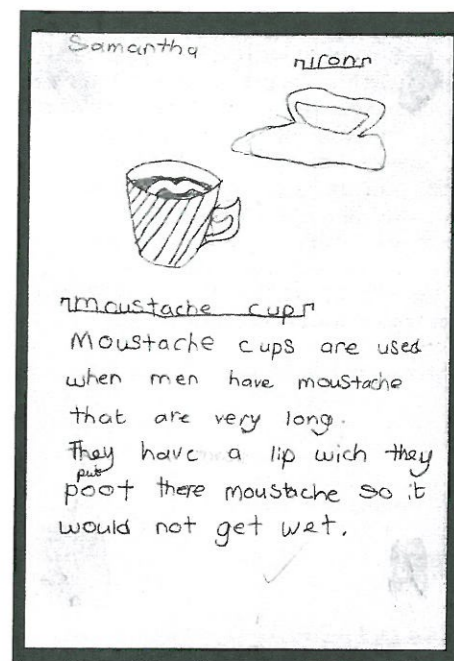 Samantha
iron
moustache cup
Moustache cups are used
when men have moustache
that are very long.
They have a lip wich they
put
poot there moustache so it
would not get wet.